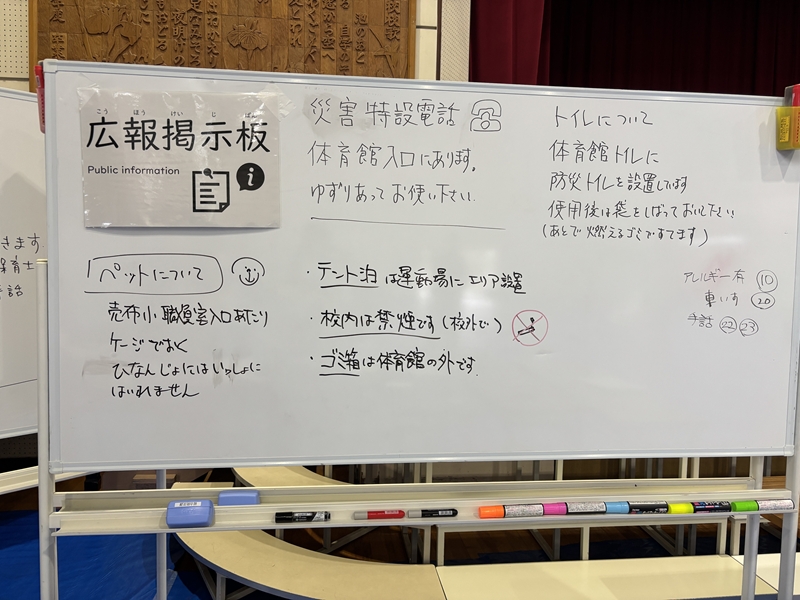 こう ほう けい じ ばん
広報掲示板
Public information
i
災害特設電話
体育館入口にあります。
ゆずりあってお使い下さい。
トイレについて
体育館トイレに
防災トイレを設置しています
使用後は袋をしばっておいて下さい
(あとで燃えるゴミですてます)
ペットについて
売布小職員室入口あたり
ケージでおく
ひなんじょにはいっしょに
はいれません
・テント泊は運動場にエリア設置
・校内は禁煙です(校外で)
・ゴミ箱は体育館の外です。
アレルギー有 10
車いす 20
手話 22 23
きます
保育士